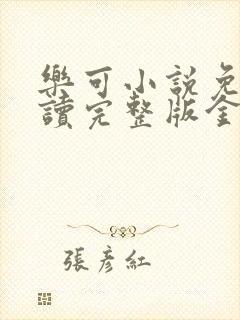 樂可小說免
讀完整版全
張彥紅